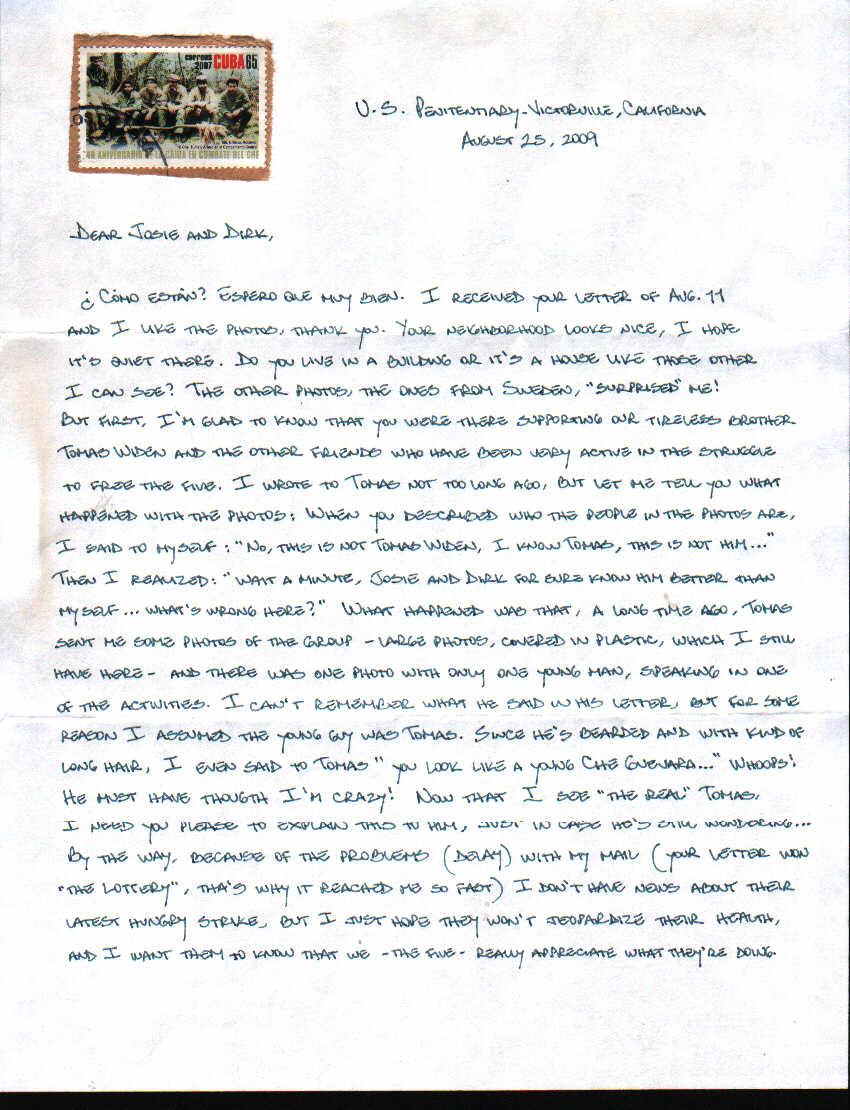 correos
2007 CUBA 65
40 ANIVERSARIO DE LA CAIDA EN COMBATE DEL CHE
U.S. PENITENTIARY-VICTORVILLE, CALIFORNIA
AUGUST 25, 2009
DEAR JOSIE AND DIRK,
¿CÓMO ESTÁN? ESPERO QUE MUY BIEN. I RECEIVED YOUR LETTER OF AUG. 11
AND I LIKE THE PHOTOS, THANK YOU. YOUR NEIGHBORHOOD LOOKS NICE, I HOPE
IT'S QUIET THERE. DO YOU LIVE IN A BUILDING OR IT'S A HOUSE LIKE THOSE OTHER
I CAN SEE? THE OTHER PHOTOS, THE ONES FROM SWEDEN, "SURPRISED" ME!
BUT FIRST, I'M GLAD TO KNOW THAT YOU WERE THERE SUPPORTING OUR TIRELESS BROTHER
TOMAS WIDEN AND THE OTHER FRIENDS WHO HAVE BEEN VERY ACTIVE IN THE STRUGGLE
TO FREE THE FIVE. I WROTE TO TOMAS NOT TOO LONG AGO, BUT LET ME TELL YOU WHAT
HAPPENED WITH THE PHOTOS: WHEN YOU DESCRIBED WHO THE PEOPLE IN THE PHOTOS ARE,
I SAID TO MYSELF: "NO, THIS IS NOT TOMAS WIDEN, I KNOW TOMAS, THIS IS NOT HIM..."
THEN I REALIZED: "WAIT A MINUTE, JOSIE AND DIRK FOR SURE KNOW HIM BETTER THAN
MYSELF... WHAT'S WRONG HERE?" WHAT HAPPENED WAS THAT, A LONG TIME AGO, TOMAS
SENT ME SOME PHOTOS OF THE GROUP -LARGE PHOTOS, COVERED IN PLASTIC, WHICH I STILL
HAVE HERE- AND THERE WAS ONE PHOTO WITH ONLY ONE YOUNG MAN, SPEAKING IN ONE
OF THE ACTIVITIES. I CAN'T REMEMBER WHAT HE SAID IN HIS LETTER, BUT FOR SOME
REASON I ASSUMED THE YOUNG GUY WAS TOMAS. SINCE HE'S BEARDED AND WITH KIND OF
LONG HAIR, I EVEN SAID TO TOMAS "YOU LOOK LIKE A YOUNG CHE GUEVARA..." WHOOPS!
HE MUST HAVE THOUGTH I'M CRAZY! NOW THAT I SEE "THE REAL" TOMAS,
I NEED YOU PLEASE TO EXPLAIN THIS TO HIM, JUST IN CASE HE'S STILL WONDERING...
BY THE WAY, BECAUSE OF THE PROBLEMS (DELAY) WITH MY MAIL (YOUR LETTER WON
"THE LOTTERY", THA'S WHY IT REACHED ME SO FAST) I DON'T HAVE NEWS ABOUT THEIR
LATEST HUNGRY STRIKE, BUT I JUST HOPE THEY WON'T JEOPARDIZE THEIR HEALTH,
AND I WANT THEM TO KNOW THAT WE -THE FIVE- REALLY APPRECIATE WHAT THEY'RE DOING.